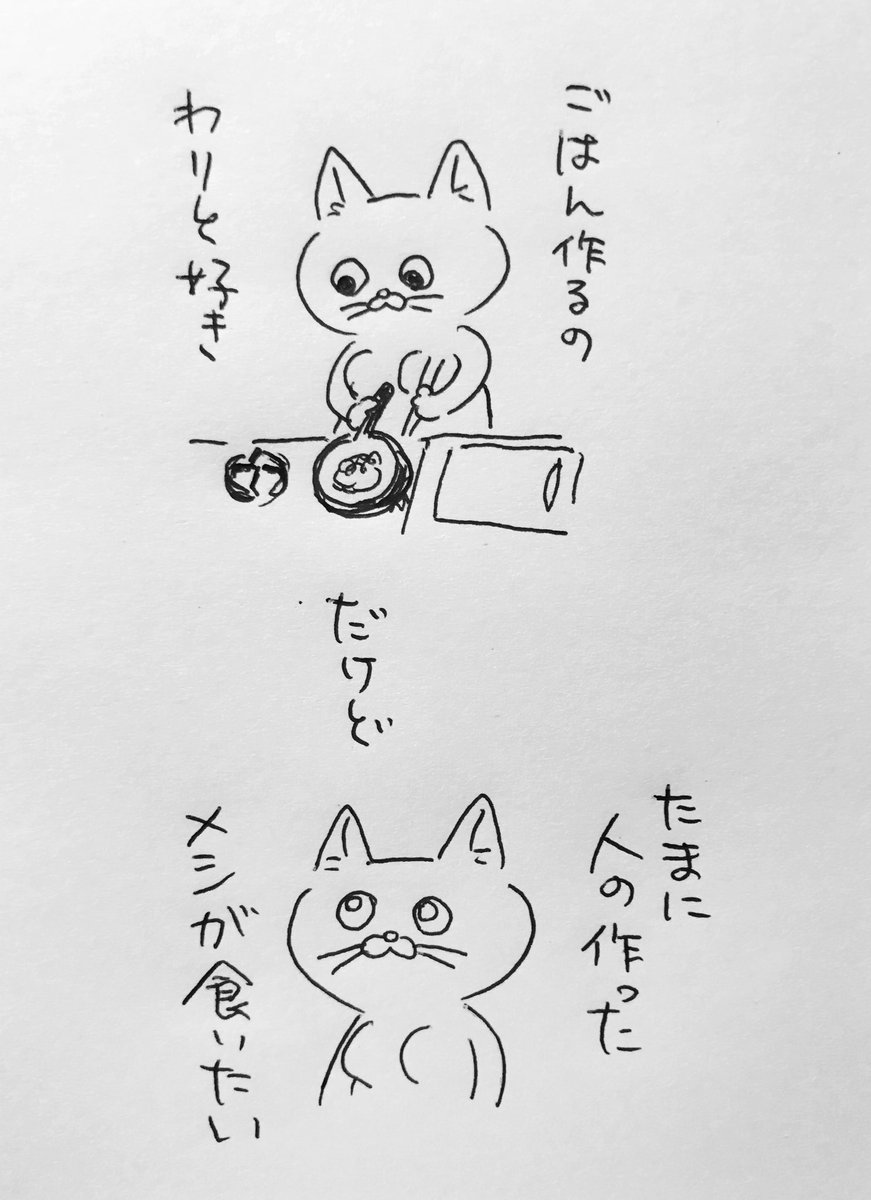 ごはん作るの
わりと好き
だけど
たまに
人の作った
メシが食いたい